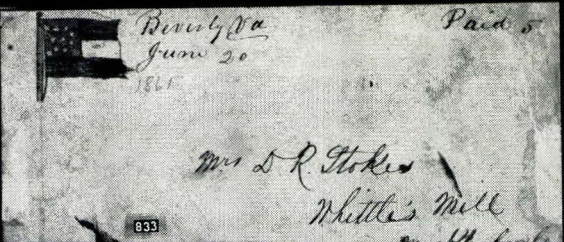 Beverly Va
June 20
1861
Paid 5
Mrs D R. Stokes
Whittle's Mill
833